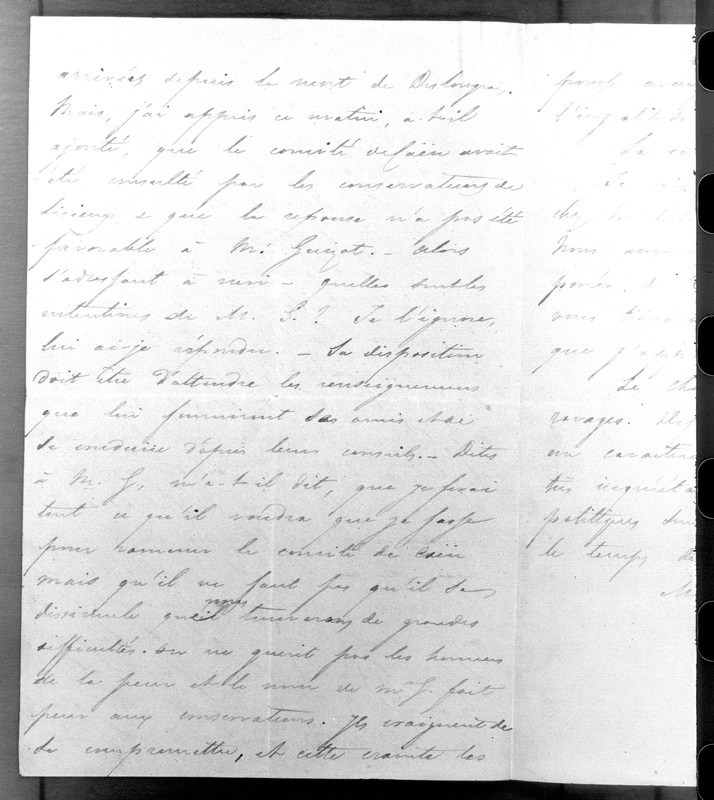 arrivées depuis la mort de Deslongrai.
Mais, j'ai appris ce matin, a-t-il
ajouté, que le comité de Caën avait
été consulté par les conservateurs de
Lisieux, e que la reponse n'a pas été
favorable à Mr Guizot. – Alors
s'adressant à moi – quelles sont les
intentions de M. G.? Je l'ignore,
lui ai-je répondu. – Sa disposition
doit être d'attendre les renseignemens
que lui fourniront ses amis et de
se conduire d'après leurs conseils. – Dites
à M. G., m'a-t-il dit, que je ferai
tout ce qu'il voudra que je fasse
pour ramener le comité de Caën
mais qu'il ne faut pas qu'il se
dissimule que nous trouverons de grandes
difficultés. On ne guérit pas les hommes
de la peur et le nom de Mr G. fait
peur aux conservateurs. Ils craignent de
se compromettre, et cette crainte les
l'ingratitude
La
Je
chez
Nous
porter
vous
que j'app
Le
ravages.
un caractère
très inquiéta
politiques
le temps de